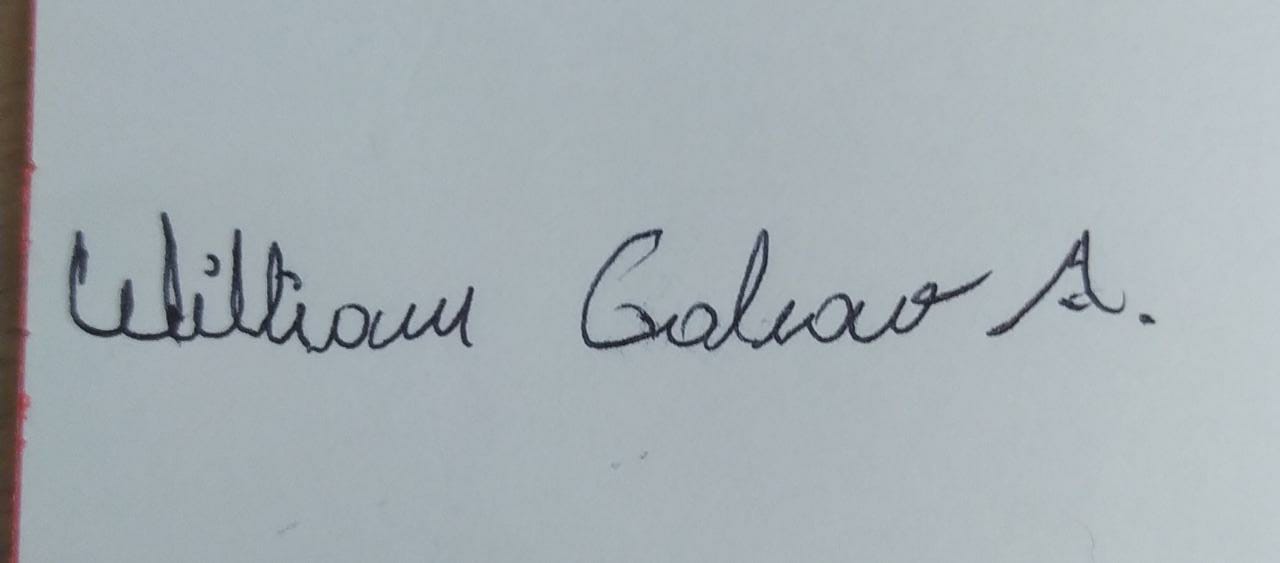 William Galvao A.